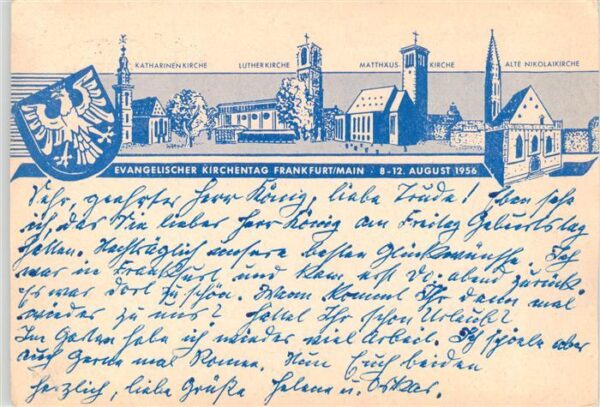 KATHARINENKIRCHE LUTHERKIRCHE MATTHÄUS KIRCHE ALTE NIKOLAIKIRCHE
EVANGELISCHER KIRCHENTAG FRANKFURT/MAIN · 8-12. AUGUST 1956
Sehr, geehrter Herr König, liebe Trude! Eben sehe
ich, das Sie lieber Herr König am Freitag Geburtstag
hatten. Nachträglich unsere besten Glückwünsche. Ich
war in Frankfurt und kam erst Do. abend zurück.
Es war dort zu schön. Wann kommt Ihr denn mal
wieder zu uns? Hattet Ihr schon Urlaub?
Im Garten habe ich wieder viel Arbeit. Ich aber
auch gerne mal. Nun Euch beiden
herzlich, liebe Grüße Helene u. Oskar.